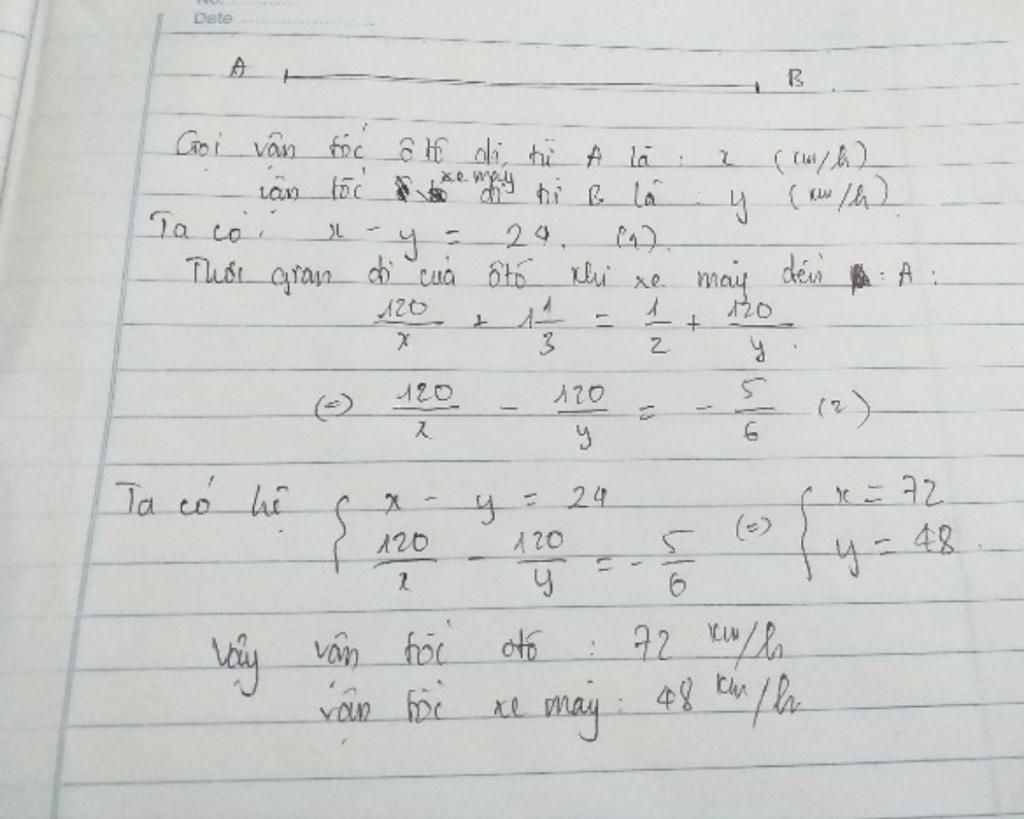 No.
Date
A B
Gọi vận tốc ô tô đi từ A là : x (km/h)
vận tốc xe máy đi từ B là : y (km/h)
Ta có : x - y = 24. (1).
Thời gian đi của ôtô khi xe máy đến : A :
120/x + 1 1/3 = 1/2 + 120/y .
(=) 120/x - 120/y = - 5/6 (2)
Ta có hệ { x - y = 24 ; 120/x - 120/y = - 5/6 (=) { x = 72 ; y = 48 .
Vậy vận tốc ôtô : 72 km/h
vận tốc xe máy : 48 km/h